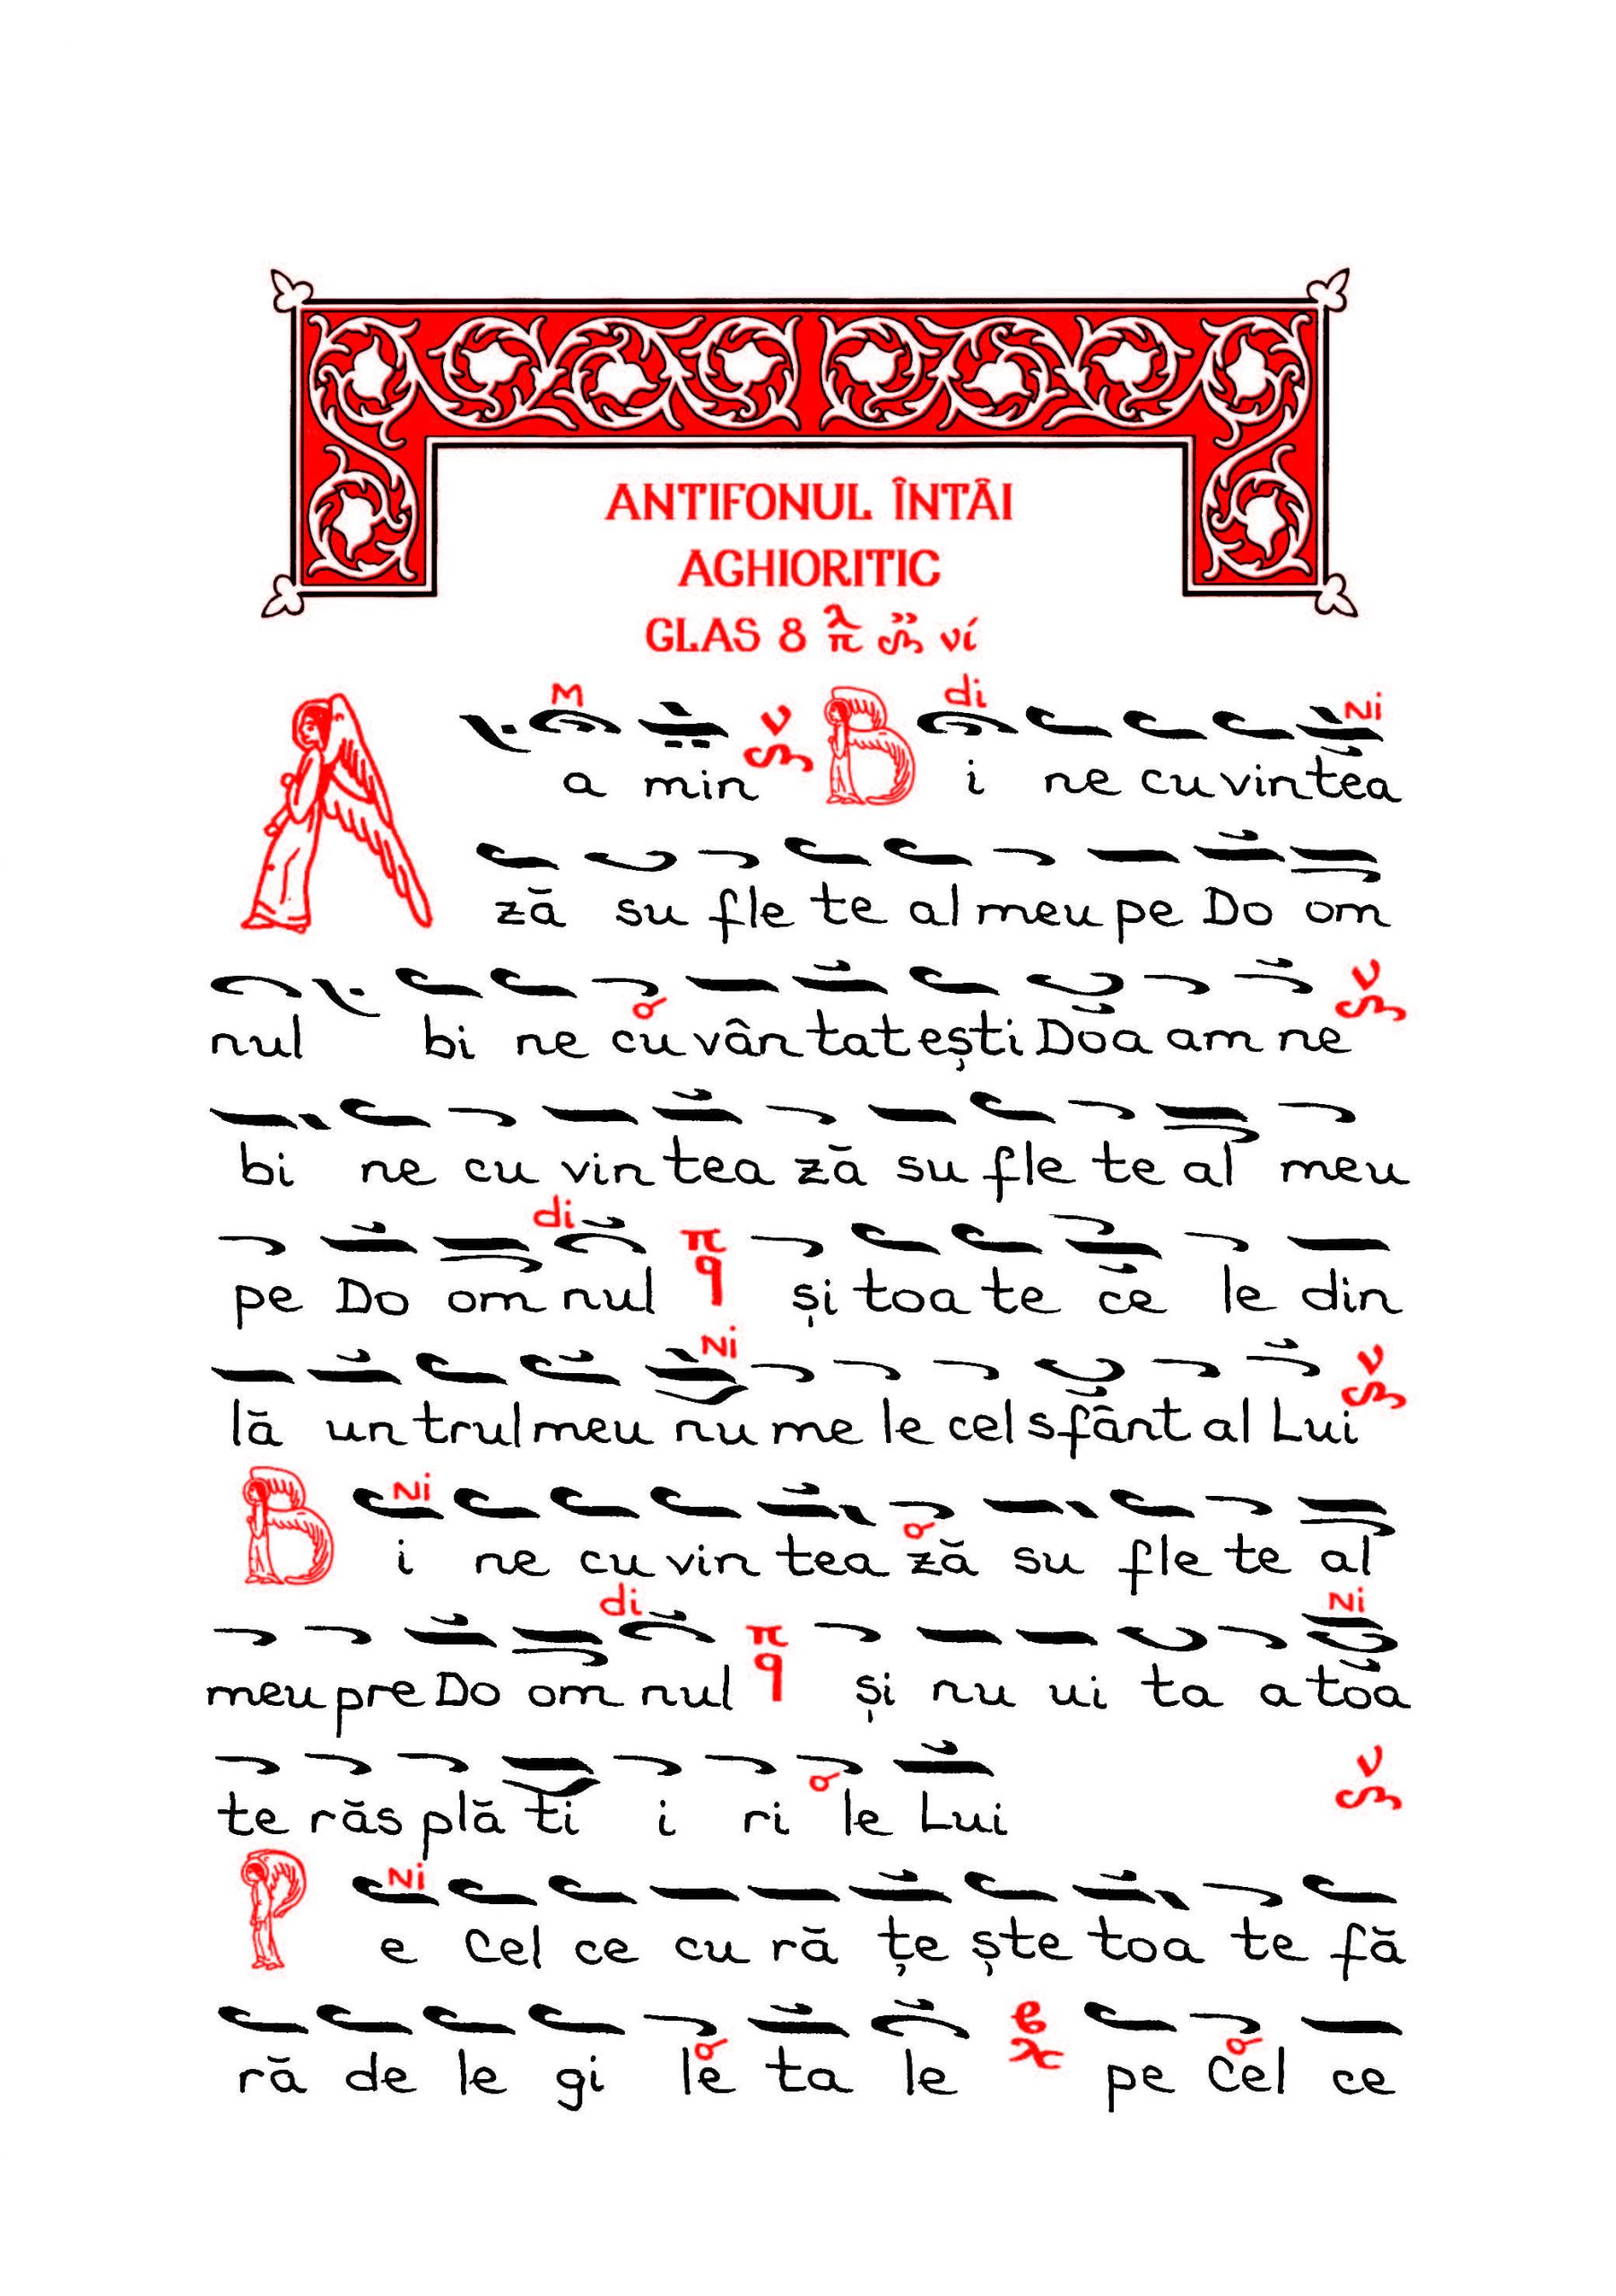 ANTIFONUL ÎNTÂI
AGHIORITIC
GLAS 8 λ π νί
M di Ni
A a min ν B i ne cu vin tea
ză su fle te al meu pe Do om
nul bi ne cu vân tat ești Doa am ne ν
bi ne cu vin tea ză su fle te al meu
di
pe Do om nul π q și toa te ce le din
Ni
lă un trul meu nu me le cel sfânt al Lui ν
Ni
B i ne cu vin tea ză su fle te al
di Ni
meu pre Do om nul π q și nu ui ta a toa
te răs plă ti i ri le Lui ν
Ni
P e Cel ce cu ră țe ște toa te fă
ră de le gi le ta le pe Cel ce